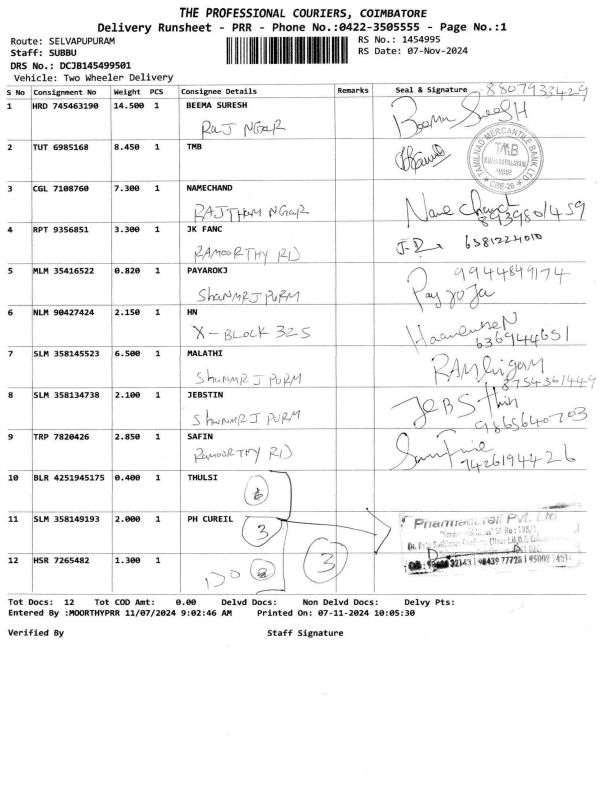 THE PROFESSIONAL COURIERS, COIMBATORE
Delivery Runsheet - PRR - Phone No.:0422-3505555 - Page No.:1
Route: SELVAPUPURAM RS No.: 1454995
Staff: SUBBU RS Date: 07-Nov-2024
DRS No.: DCJB145499501
Vehicle: Two Wheeler Delivery
S No Consignment No Weight PCS Consignee Details Remarks Seal & Signature 8807933429
1 HRD 745463190 14.500 1 BEEMA SURESH
RAJ NGAR
2 TUT 6985168 8.450 1 TMB
TAMILNAD MERCANTILE BANK LTD
TMB
CBE-26
3 CGL 7108760 7.300 1 NAMECHAND Name Chand
RAJTHAM NGAR 8939801459
4 RPT 9356851 3.300 1 JK FANC
RAMOORTHY RD 6381224010
5 MLM 35416522 0.820 1 PAYAROKJ 9944849174
ShanMRJ PURM
6 NLM 90427424 2.150 1 HN
X-BLOCK 325 6369144651
7 SLM 358145523 6.500 1 MALATHI
ShUNMRJ PURM 8754361449
8 SLM 358134738 2.100 1 JEBSTIN JEBSthin
ShUNMRJ PURM 9865640703
9 TRP 7820426 2.850 1 SAFIN
RAMOORTHY RD 7426194426
10 BLR 4251945175 0.400 1 THULSI
11 SLM 358149193 2.000 1 PH CUREIL
3
Pharmacureil Pvt. Ltd
12 HSR 7265482 1.300 1
3
Tot Docs: 12 Tot COD Amt: 0.00 Delvd Docs: Non Delvd Docs: Delvy Pts:
Entered By :MOORTHYPRR 11/07/2024 9:02:46 AM Printed On: 07-11-2024 10:05:30
Verified By Staff Signature